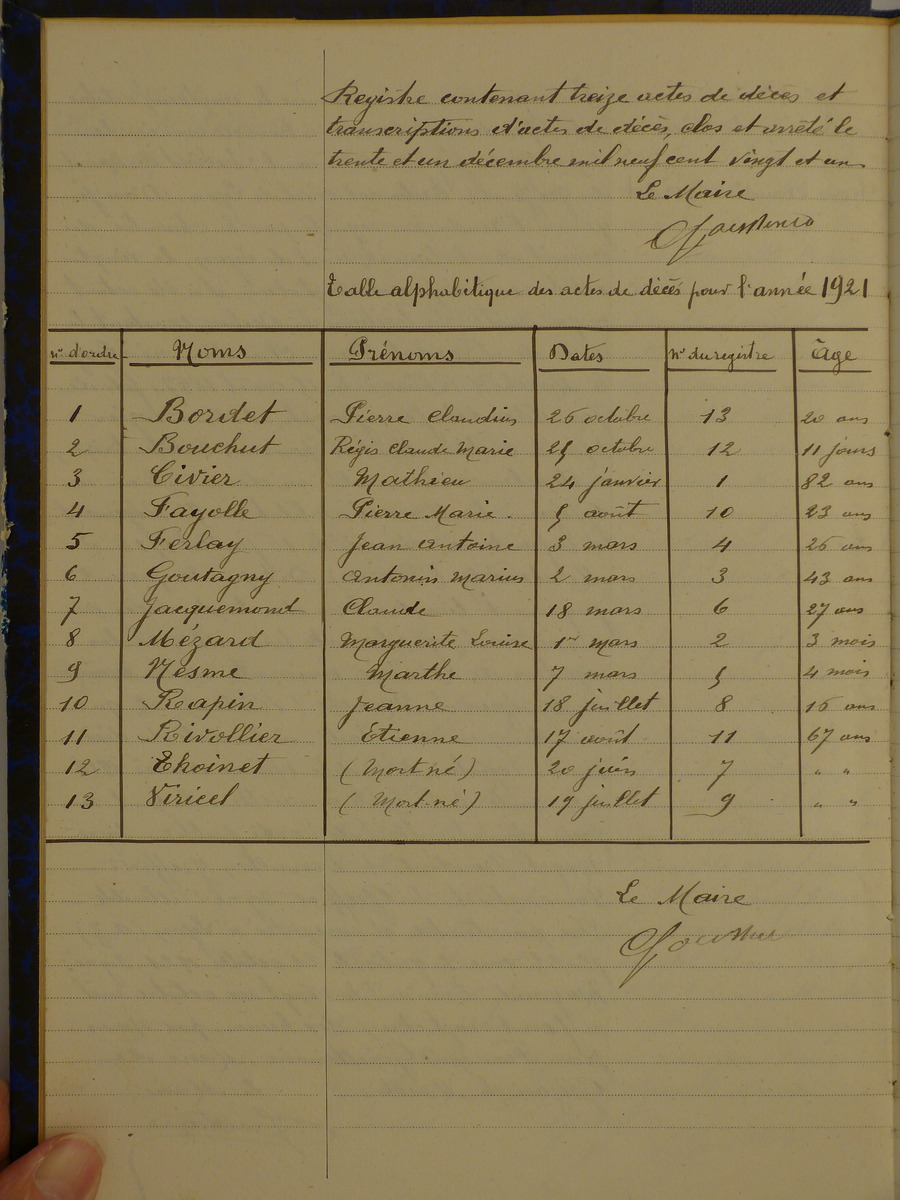 Registre contenant treize actes de décès et
transcriptions d'actes de décès, clos et arrêté le
trente et un décembre mil neuf cent vingt et un
Le Maire
Table alphabétique des actes de décès pour l'année 1921
n° d'ordre Noms Prénoms Dates N° du registre Âge
1 Bordet Pierre Claudius 26 octobre 13 20 ans
2 Bouchut Régis Claude Marie 25 octobre 12 11 jours
3 Civier Mathieu 24 janvier 1 82 ans
4 Fayolle Pierre Marie. 5 août 10 23 ans
5 Ferlay Jean Antoine 3 mars 4 26 ans
6 Goutagny Antonin Marius 2 mars 3 43 ans
7 Jacquemond Claude 18 mars 6 27 ans
8 Mézard Marguerite Louise 1er mars 2 3 mois
9 Nesme Marthe 7 mars 5 4 mois
10 Rapin Jeanne 18 juillet 8 16 ans
11 Rivollier Étienne 17 août 11 67 ans
12 Thoinet (Mort né) 20 juin 7 " "
13 Viricel (Mort-né) 19 juillet 9 " "
Le Maire